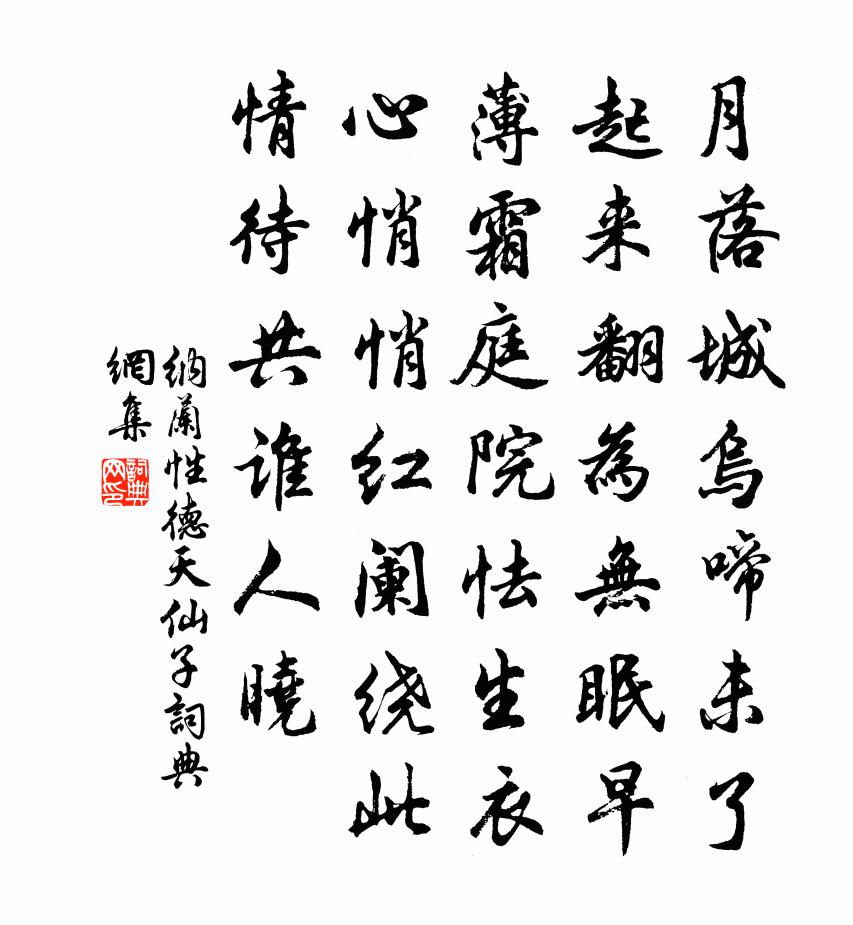 月落城烏啼未了
起来翻為無眠早
薄霜庭院怯生衣
心悄悄红阑绕此
情待共誰人曉
纳蘭性德天仙子詞典
網集
詞典
网印